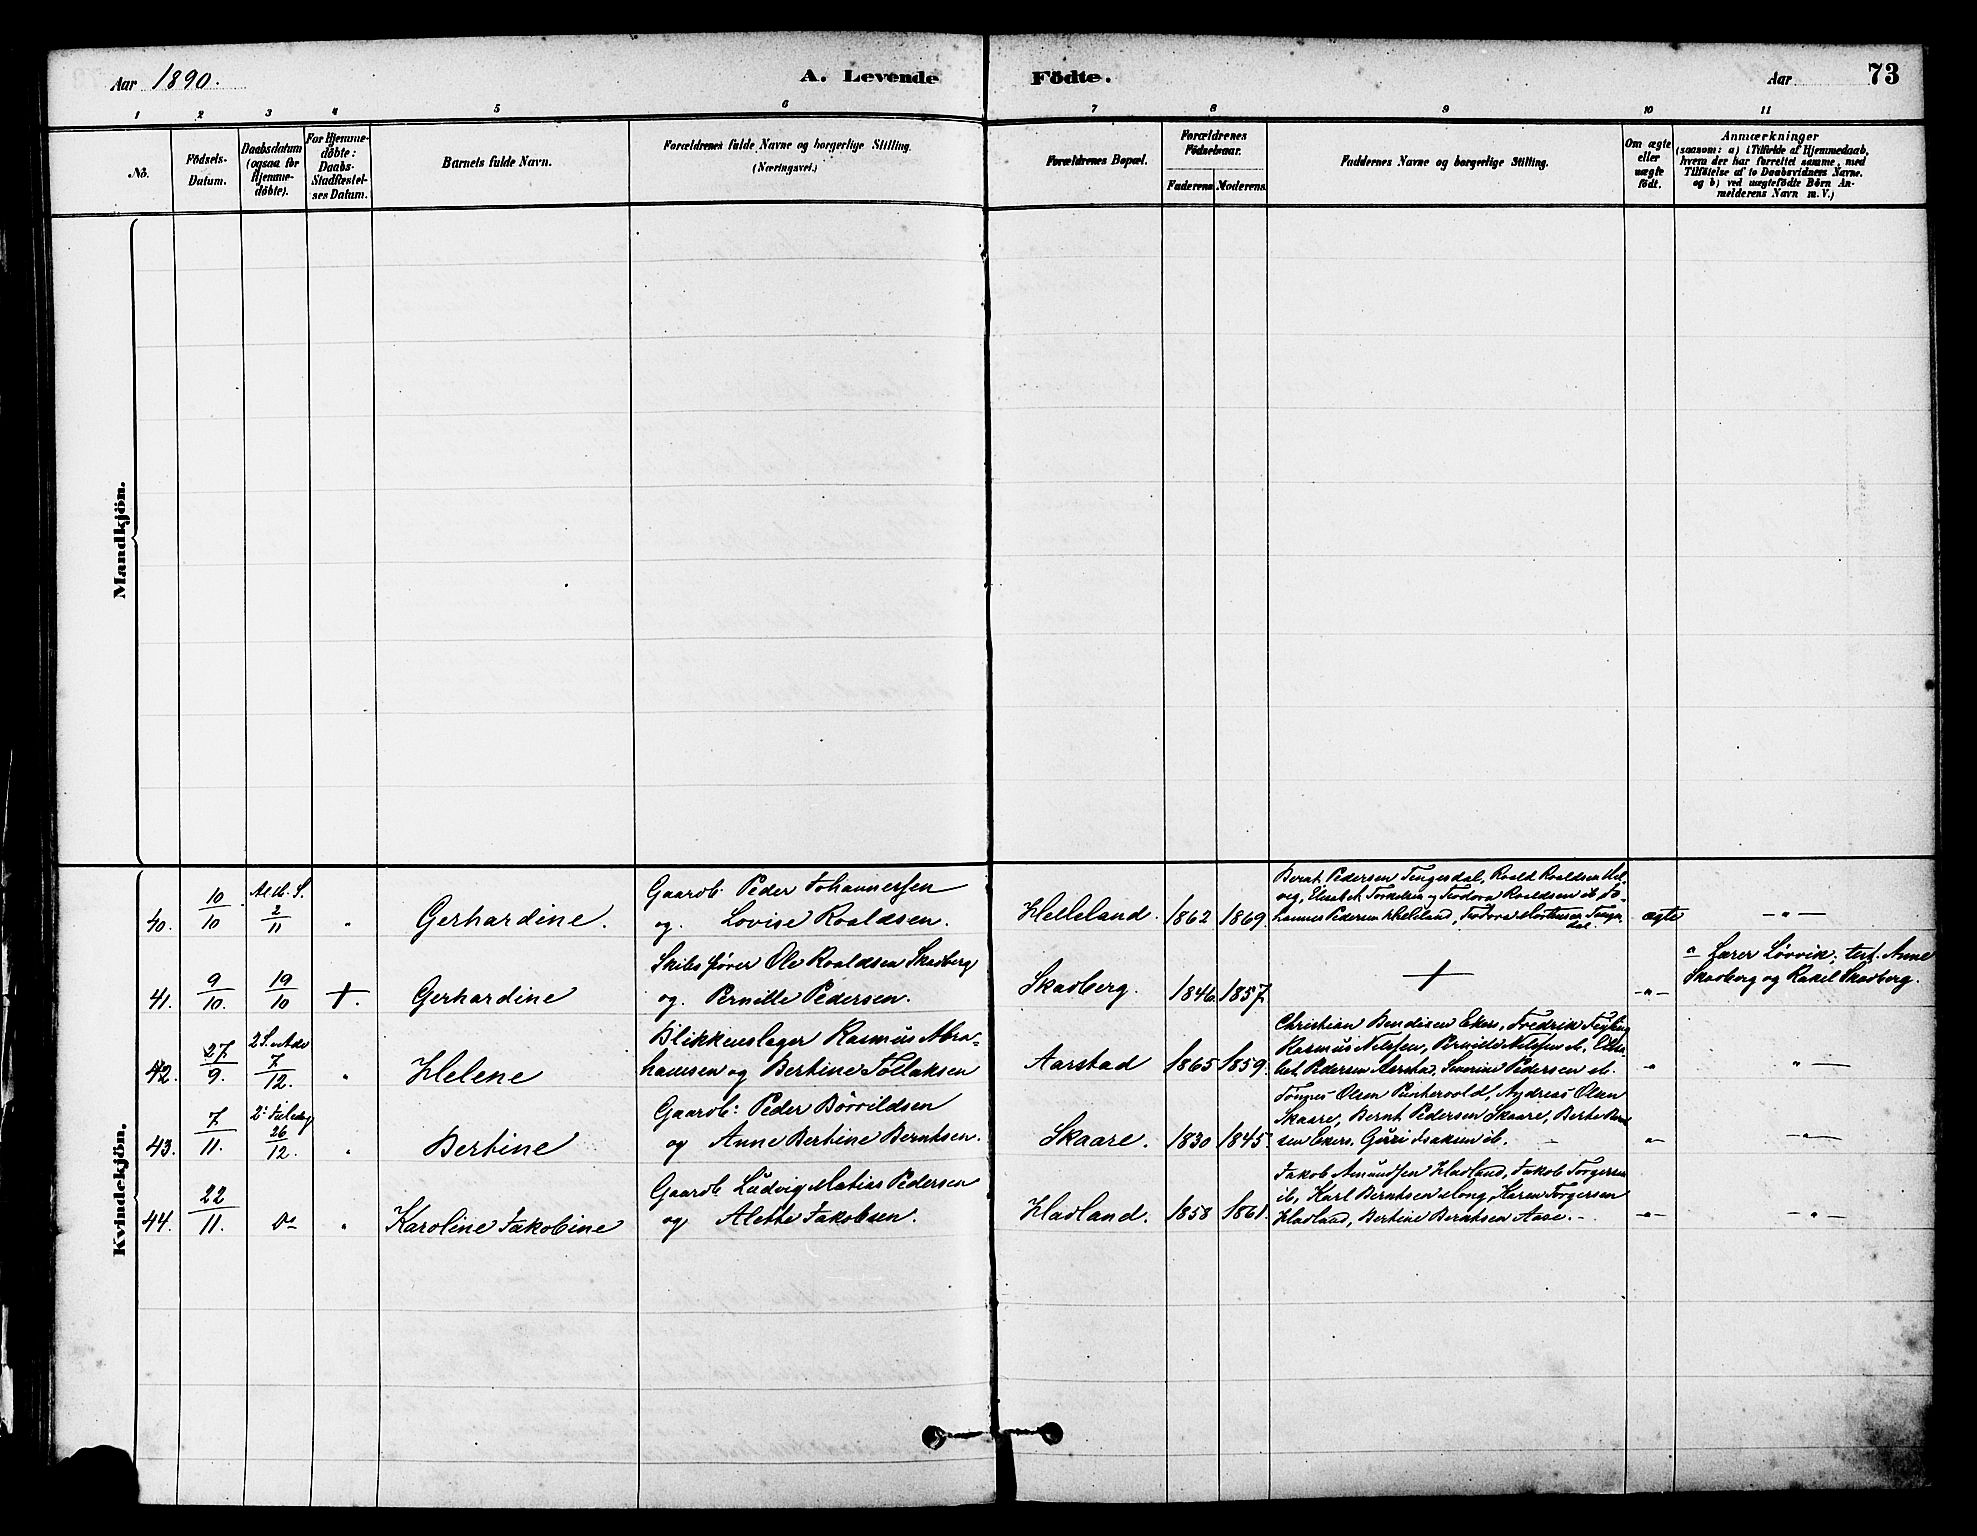 Aar 1890. A. Levende Födte. Aar 73
1 2 3 4 5 6 7 8 9 10 11
No.
Födsels-
Datum.
Daabsdatum
(ogsaa for
Hjemme-
döbte).
For Hjemme-
döbte:
Daabs-
Stadfæstel-
ses Datum.
Barnets fulde Navn.
Forældrenes fulde Navne og borgerlige Stilling.
(Næringsvei.)
Forældrenes Bopæl.
Forældrenes
Födselsaar.
Faderens Moderens.
Faddernes Navne og borgerlige Stilling.
Om ægte
eller
uægte
födt.
Anmærkninger
(saasom: a) i Tilfælde af Hjemmedaab,
hvem der har forrettet samme, med
Tilföielse af to Daabsvidners Navne.
og b) ved uægtefödte Börn An-
melderens Navn m. V.)
Mandkjön.
Kvindekjön.
40. 10/10 2/11 " Gerhardine.
Gaardb. Peder Johannessen
og Lovise Roaldsen.
Helleland. 1862 1869.
Bernt Pedersen Tengesdal, Roald Roaldsen Hel-
veg, Elisabet Torkelsen og Teodora Roaldsen ib Jo-
hannes Pedersen Helleland, Teodora Mortensen Tenges-
dal.
ægte -"-
41. 9/10. 19/10 +. Gerhardine
Skibsfører Ole Roaldsen Skadberg
og Pernille Pedersen.
Skadberg. 1846 1857.
+
-"-
a Lærer Løvvik; test. Anne
Skadberg og Rakel Skadberg.
42. 27/9. 2 S. i Adv 7/12. " Helene
Blikkenslager Rasmus Abra-
hamsen og Bertine Tollaksen
Aarstad 1865 1859.
Christian Bendixen Eker, Fredrik
Rasmus Nilssen, Nilssen ib, Elisa-
bet Pedersen Aarstad, Severine Pedersen ib.
" "-
43. 7/11. 2' Juledag 26/12. " Bertine
Gaardb: Peder Börvildsen
og Anne Bertine Berntsen.
Skaare. 1830 1845.
Tönnes Olsen Puntervold, Andreas Olsen
Skaare, Bernt Pedersen Skaare, Berte
sen Eker, Guri Isaksen ib. -
"- "-
44. 22/11. Do " Karoline Jakobine
Gaardb Ludvig Matias Pedersen
og Alette Jakobsen.
Hadland. 1858 1861.
Jakob Amundsen Hadland, Jakob Torgersen
ib, Karl Berntsen Mong, Karen Torgersen
Hadland, Bertine Berntsen Aase. -
-"- -"-